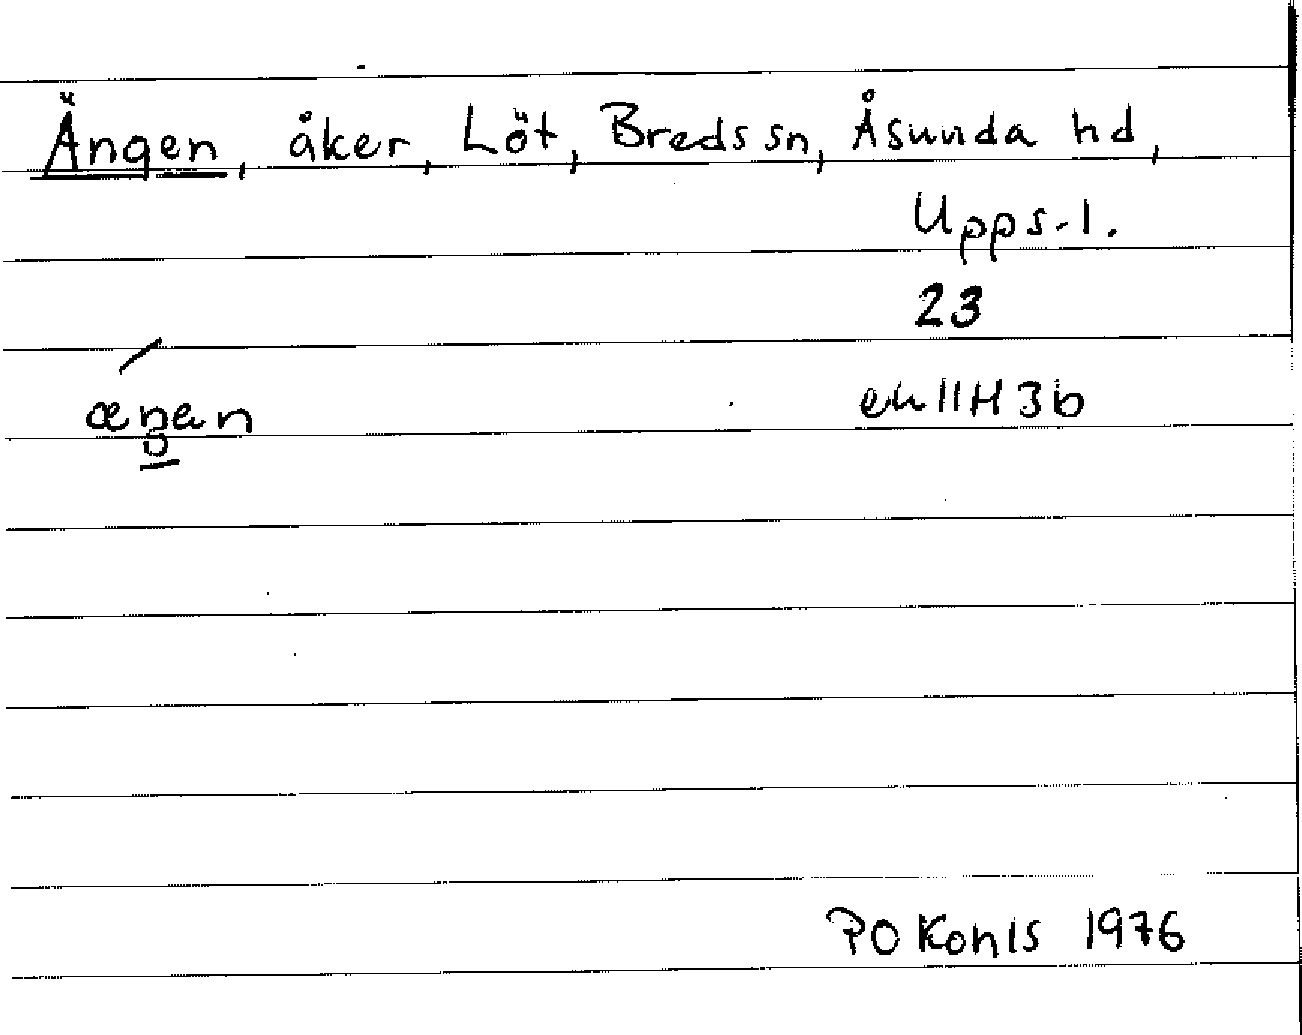 Ängen, åker, Löt, Breds sn, Åsunda hd,
Upps. l.
23
ek 11H 3b
PO Konls 1976